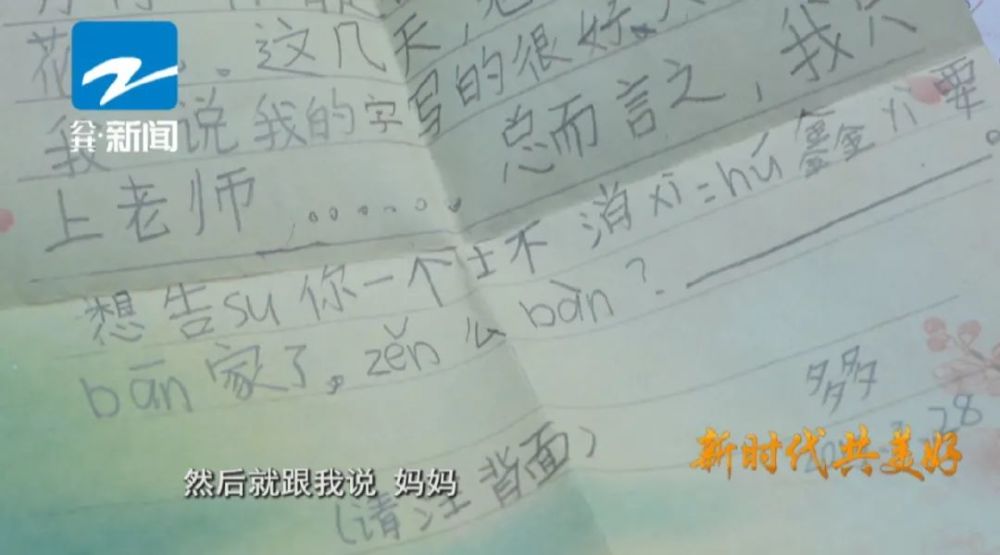 公共·新闻
花 。这几天,
我 说我的字写的很好。
上老师 ...... 总而言之,我只
想告su你一个 不消xì=hú鑫 要
bān家了。zěn么bàn?
多多
28
(请注背面)
新时代共美好
然后就跟我说 妈妈